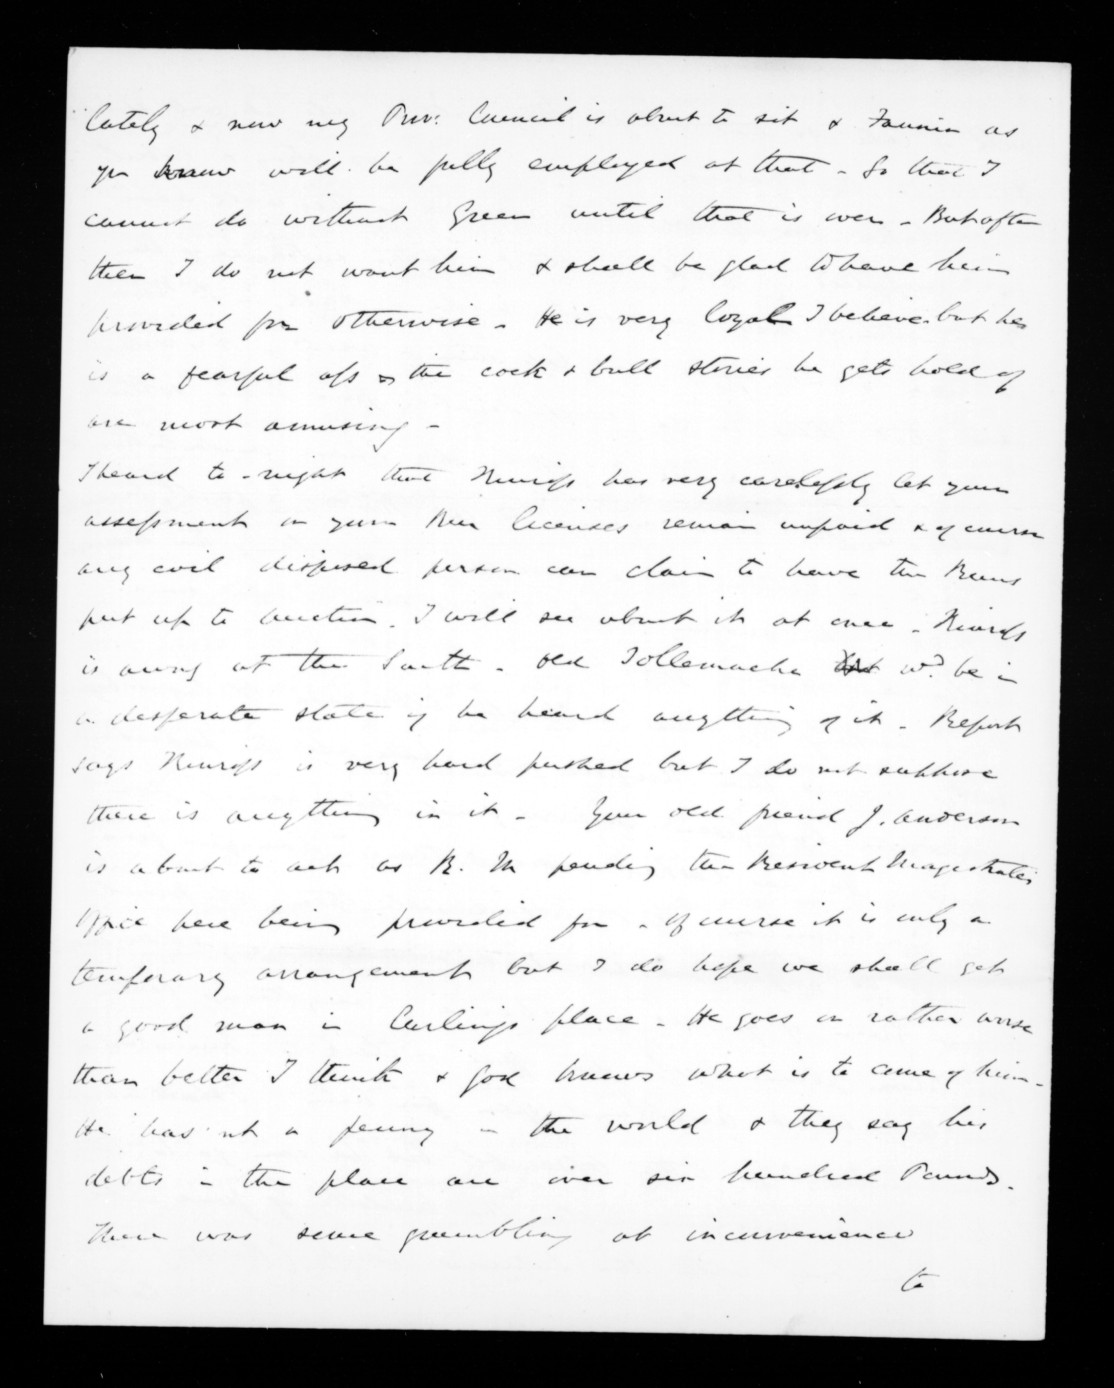 lately & now my Prov: Council is about to sit & Fannin as
you know will be fully employed at that - So that I
cannot do without Green until that is over - But after
then I do not want him & shall be glad to have him
provided for otherwise - He is very loyal I believe but he
is a fearful ass & the cock & bull stories he gets hold of
are most amusing -
I heard to-night that has very carelessly let your
assessment on your Run licenses remain unpaid & of course
any evil disposed person can claim to have the Runs
put up to auction. I will see about it at once -
is away at the South - Old Tollemache wd. be in
a desperate state if he heard anything of it - Report
says is very hard pushed but I do not suppose
there is anything in it - Your old friend J. Anderson
is about to act as R. M pending the Resident Magistrates
office here being provided for - Of course it is only a
temporary arrangement but I do hope we shall get
a good man in Curling's place - He goes on rather worse
than better I think & God knows what is to come of him -
He has not a penny in the world & they say his
debts in the place are over six hundred Pounds.
There was some grumbling at inconvenience
to